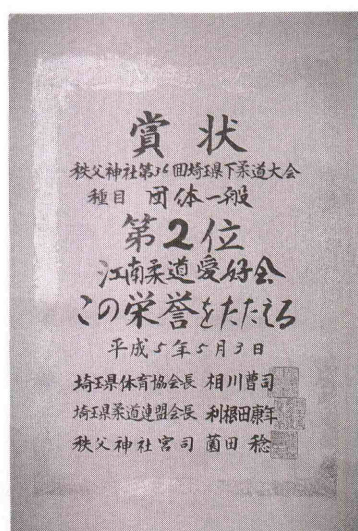 賞状
秩父神社第36回埼玉県下柔道大会
種目 団体一般
第2位
江南柔道愛好会
この栄誉をたたえる
平成5年5月3日
埼玉県体育協会長 相川曹司
埼玉県柔道連盟会長 利根田康年
秩父神社宮司 薗田 稔